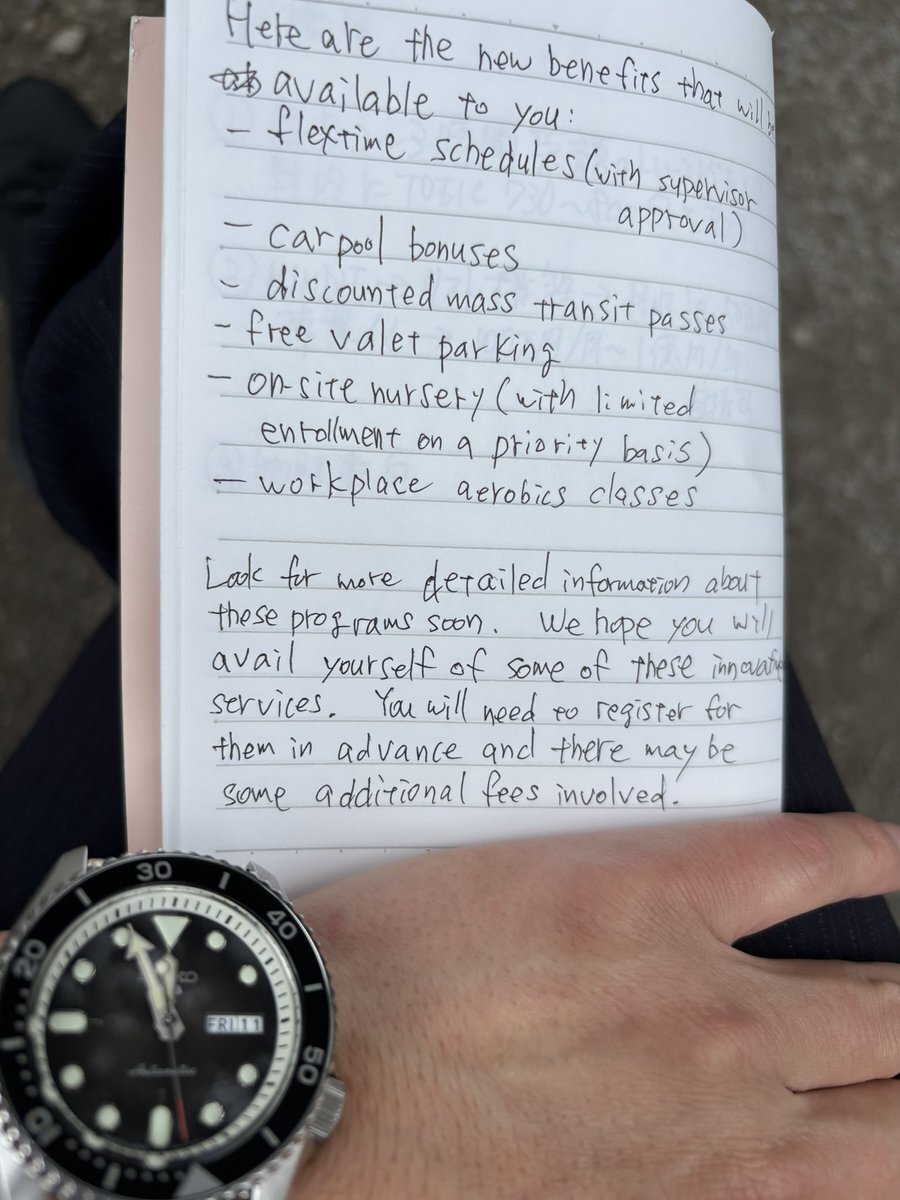 Here are the new benefits that will be
available to you:
- flextime schedules (with supervisor
approval)
- carpool bonuses
- discounted mass transit passes
- free valet parking
- on-site nursery (with limited
enrollment on a priority basis)
- workplace aerobics classes
Look for more detailed information about
these programs soon. We hope you will
avail yourself of some of these innovative
services. You will need to register for
them in advance and there may be
some additional fees involved.
30
40
20
FRI 11
Automatic
50
10